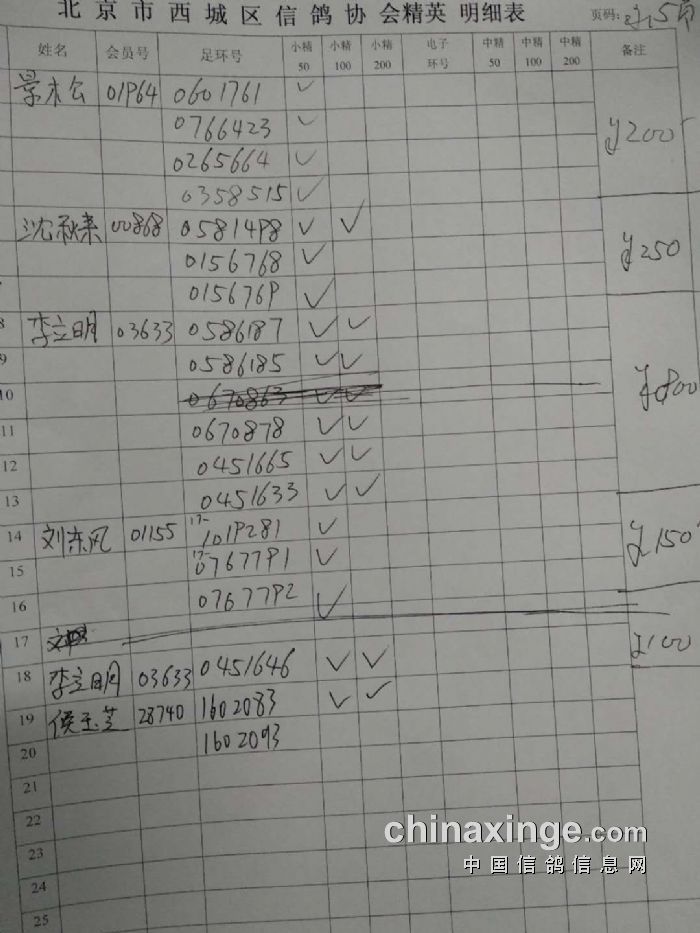 北京市西城区信鸽协会精英 明细表 页码:
姓名 会员号 足环号 小精50 小精100 小精200 电子环号 中精50 中精100 中精200 备注
01964 0601761 ✓ ¥200
0766423 ✓
0265664 ✓
0358515 ✓
沈秋来 00868 0581498 ✓ ✓ ¥250
0156768 ✓
0156769 ✓
8 李立明 03633 0586187 ✓ ✓
9 0586185 ✓ ✓
10 0670863 ✓ ✓
11 0670878 ✓ ✓
12 0451665 ✓ ✓
13 0451633 ✓ ✓
14 刘东风 01155 17-1019281 ✓ ¥150
15 17-0767791 ✓
16 0767792 ✓
17
18 李立明 03633 0451646 ✓ ✓ ¥100
19 侯玉芝 28740 1602083 ✓ ✓
20 1602093
21
22
23
24
25
chinaxinge.com
中国信鸽信息网